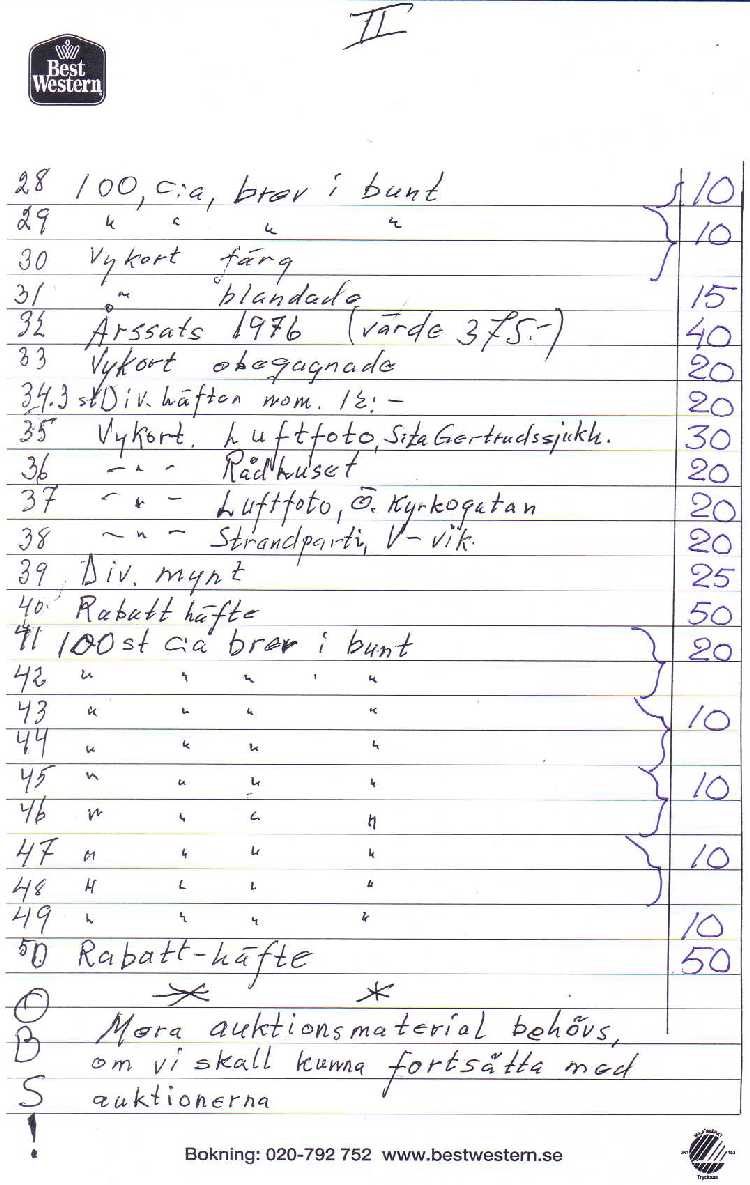 II
Best
Western
28 100, c:a, brev i bunt 10
29 " " " " 10
30 Vykort färg
31 " blandade 15
32 Årssats 1976 (värde 375.-) 40
33 Vykort obegagnade 20
34. 3 st Div. häften nom. 12:- 20
35 Vykort. Luftfoto, S:ta Gertrudssjukh. 30
36 - " - Rådhuset 20
37 - " - Luftfoto, Ö. Kyrkogatan 20
38 - " - Strandparti, V-vik. 20
39 Div. mynt 25
40. Rabatt häfte 50
41 100 st c:a brev i bunt 20
42 " " " " "
43 " " " " 10
44 " " " "
45 " " " " 10
46 " " " "
47 " " " " 10
48 " " " "
49 " " " " 10
50 Rabatt-häfte 50
OBS! Mera auktionsmaterial behövs,
om vi skall kunna fortsätta med
auktionerna
Bokning: 020-792 752 www.bestwestern.se